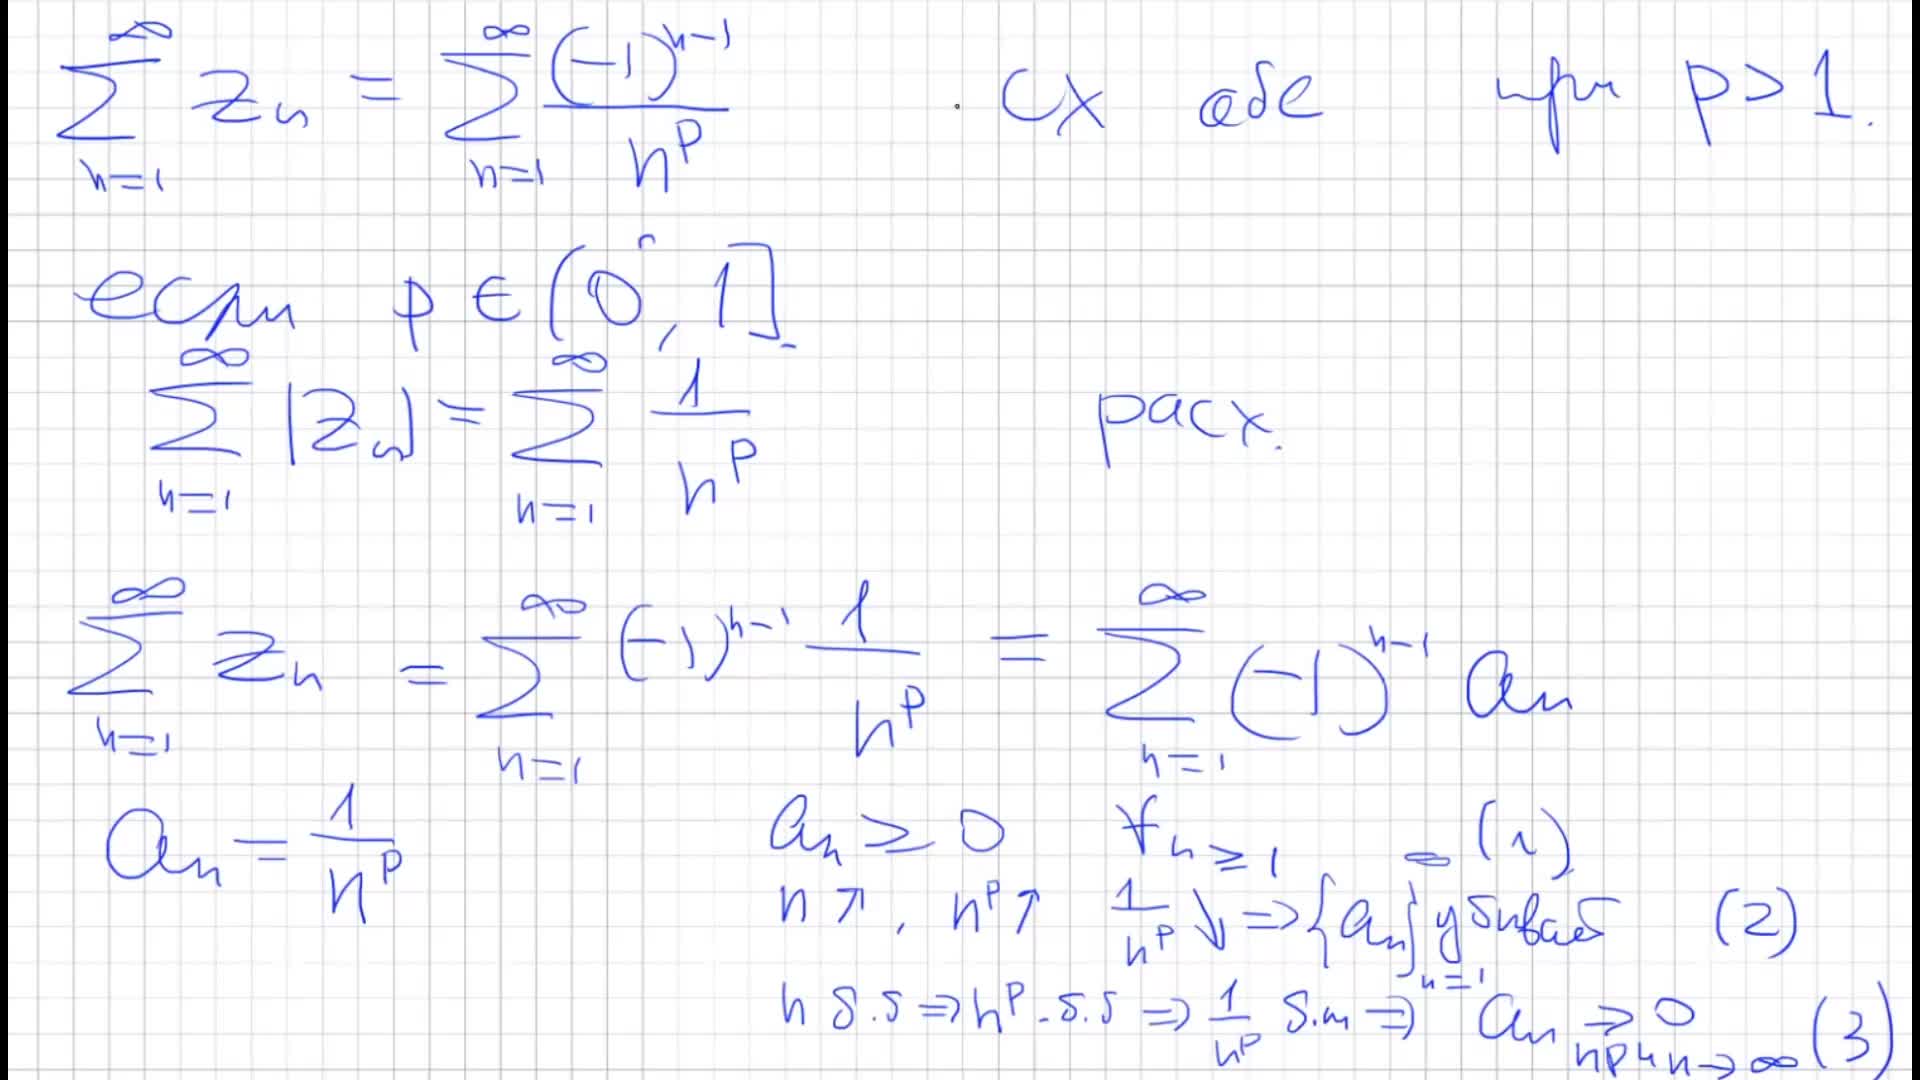 ∑_{n=1}^{∞} z_n = ∑_{n=1}^{∞} (-1)^{n-1} / n^p . сх абс при p > 1.
если p ∈ (0, 1].
∑_{n=1}^{∞} |z_n| = ∑_{n=1}^{∞} 1 / n^p расх.
∑_{n=1}^{∞} z_n = ∑_{n=1}^{∞} (-1)^{n-1} 1 / n^p = ∑_{n=1}^{∞} (-1)^{n-1} a_n
a_n = 1 / n^p a_n ≥ 0 ∀n ≥ 1 - (1)
n ↑, n^p ↑ 1 / n^p ↓ => {a_n}_{n=1}^{∞} убывает (2)
n б.б => n^p - б.б => 1 / n^p б.м => a_n → 0 при n → ∞ (3)